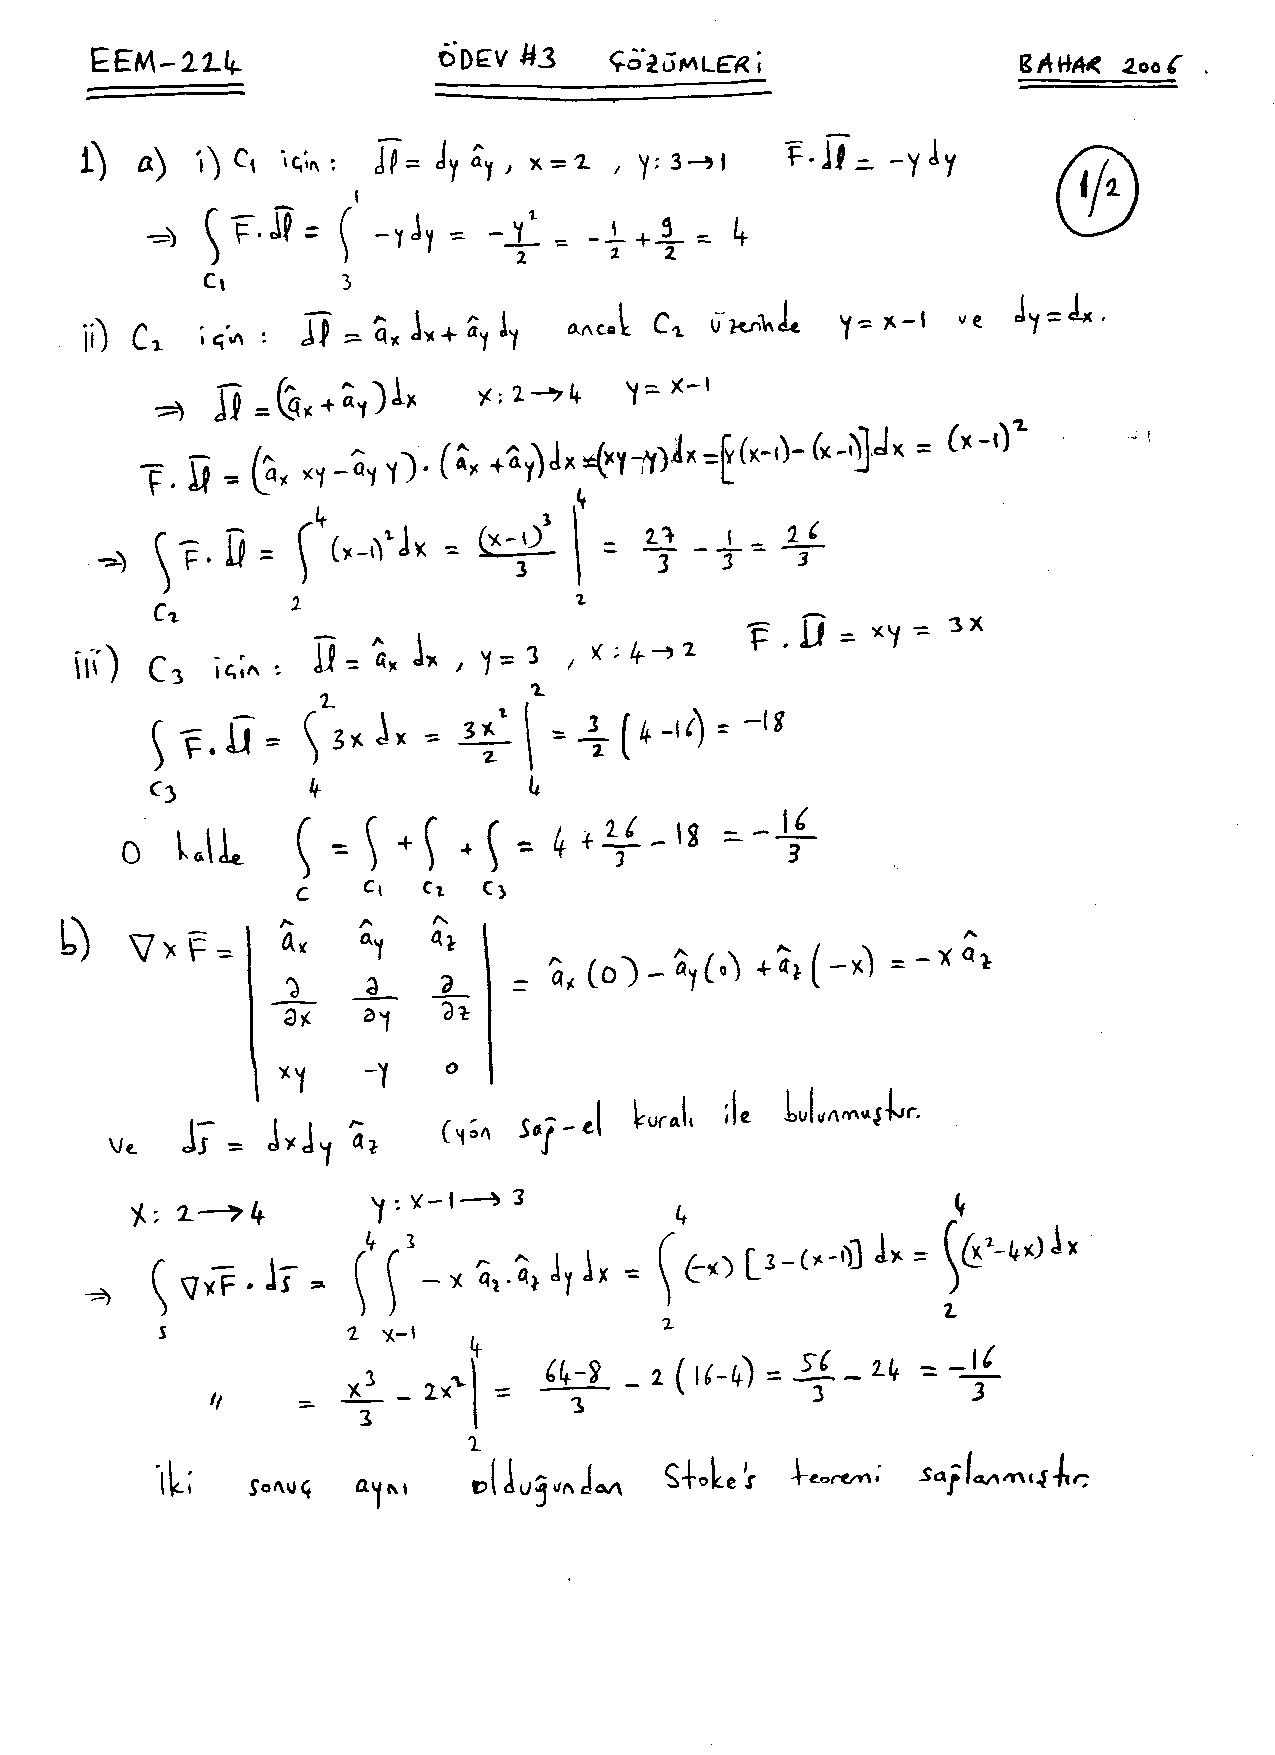 EEM-224 ÖDEV #3 ÇÖZÜMLERİ BAHAR 2006
1/2
1) a) i) C₁ için: d̅l̅ = dy ây, x=2, y: 3→1 F̅·d̅l̅ = -y dy
⇒ ∫_C₁ F̅·d̅l̅ = ∫_3^1 -y dy = -y²/2 = -1/2 + 9/2 = 4
ii) C₂ için: d̅l̅ = âx dx + ây dy ancak C₂ üzerinde y = x-1 ve dy = dx.
⇒ d̅l̅ = (âx + ây) dx x: 2→4 y = x-1
F̅·d̅l̅ = (âx xy - ây y)·(âx + ây) dx = (xy - y) dx = [x(x-1) - (x-1)] dx = (x-1)²
⇒ ∫_C₂ F̅·d̅l̅ = ∫_2^4 (x-1)² dx = (x-1)³/3 |_2^4 = 27/3 - 1/3 = 26/3
iii) C₃ için: d̅l̅ = âx dx, y = 3, x: 4→2 F̅·d̅l̅ = xy = 3x
∫_C₃ F̅·d̅l̅ = ∫_4^2 3x dx = 3x²/2 |_4^2 = 3/2 (4-16) = -18
O halde ∫_C = ∫_C₁ + ∫_C₂ + ∫_C₃ = 4 + 26/3 - 18 = -16/3
b) ∇×F̅ = | âx ây âz ; ∂/∂x ∂/∂y ∂/∂z ; xy -y 0 | = âx(0) - ây(0) + âz(-x) = -x âz
ve d̅s̅ = dxdy âz (yön sağ-el kuralı ile bulunmuştur.
x: 2→4 y: x-1→3
⇒ ∫_S ∇×F̅·d̅s̅ = ∫_2^4 ∫_{x-1}^3 -x âz·âz dy dx = ∫_2^4 (-x)[3-(x-1)] dx = ∫_2^4 (x²-4x) dx
" = x³/3 - 2x² |_2^4 = (64-8)/3 - 2(16-4) = 56/3 - 24 = -16/3
İki sonuç aynı olduğundan Stoke's teoremi sağlanmıştır.